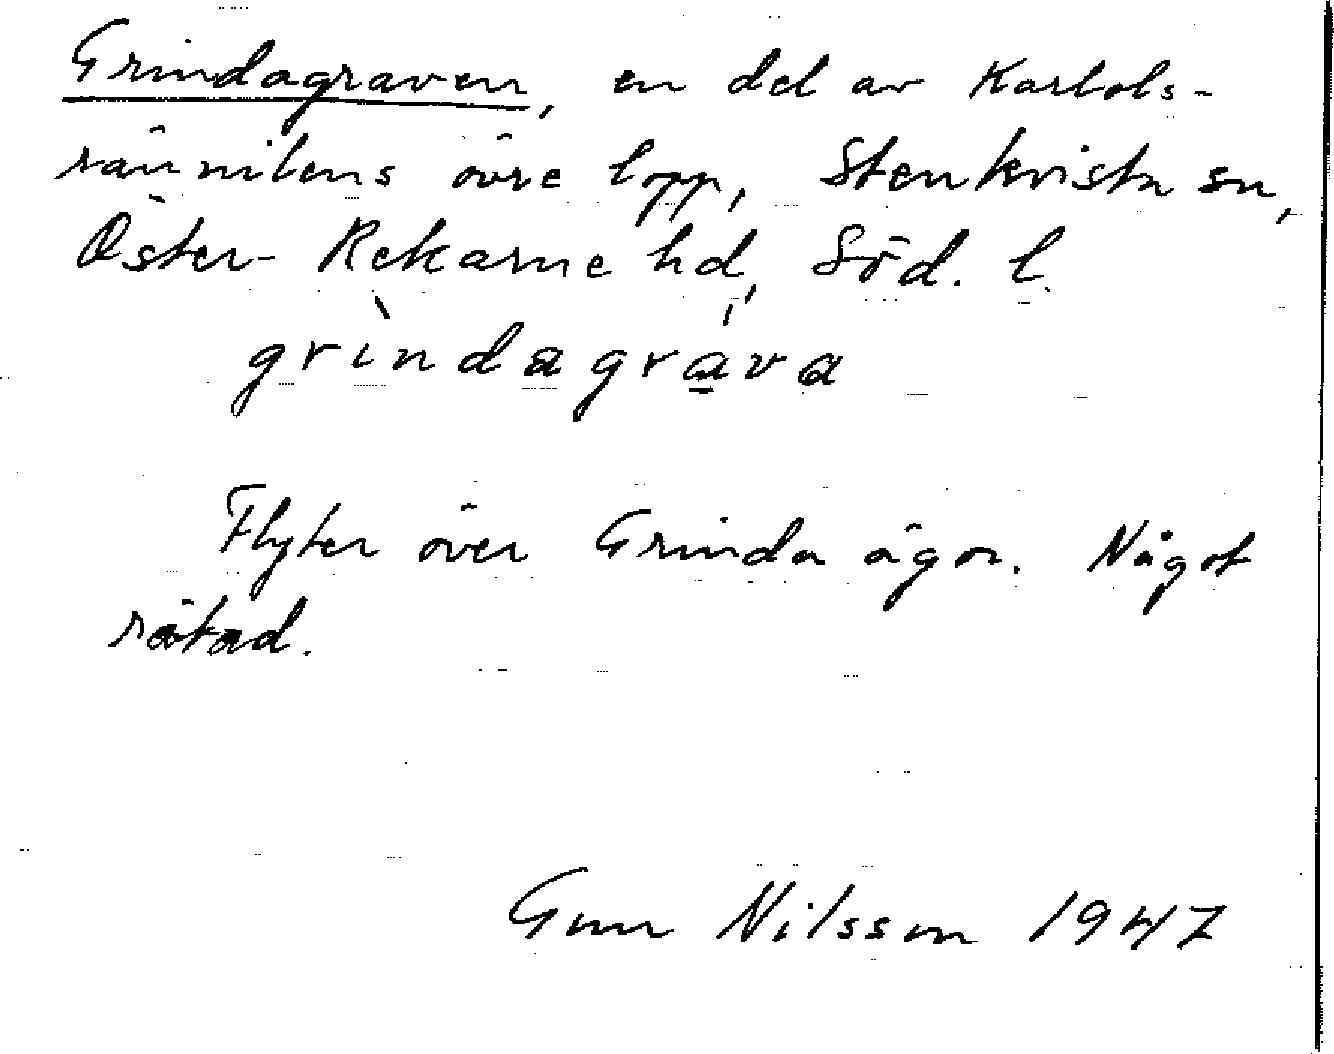 Grindagraven, en del av Karlols-
rännilens övre lopp, Stenkvista sn,
Öster-Rekarne hd, Söd. l.
grìndagráva
Flyter över Grinda ägor. Något
rätad.
Gun Nilsson 1947